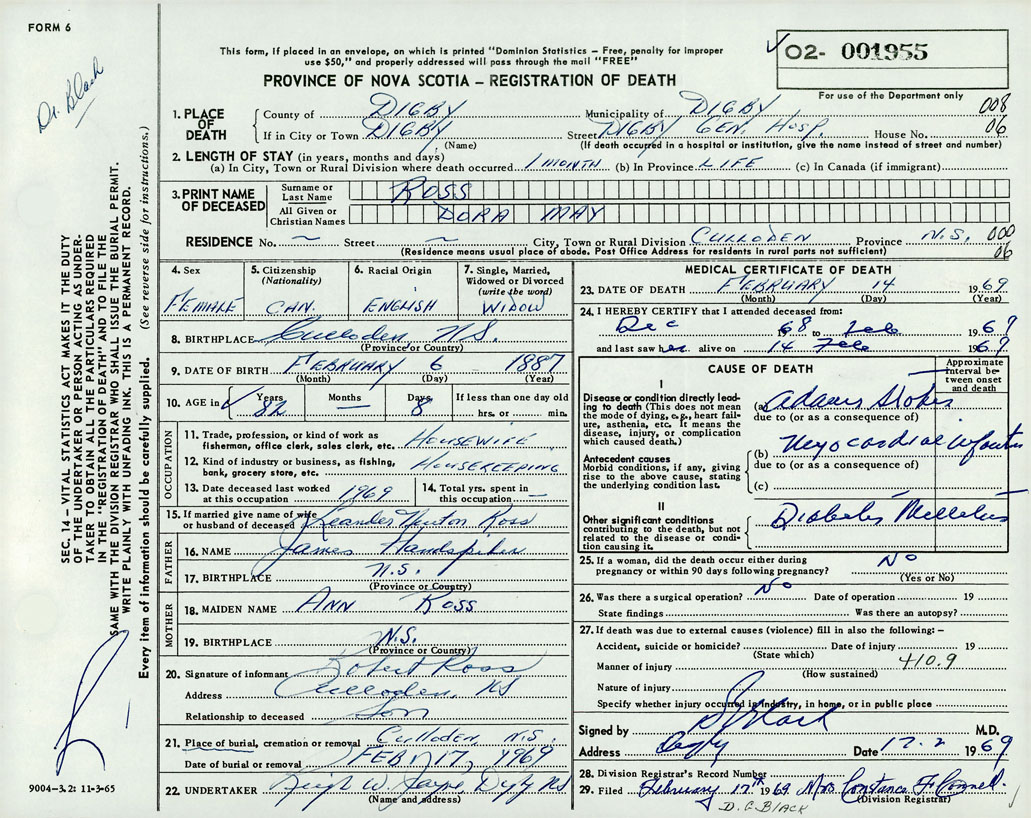 FORM 6
Dr. Black
This form, if placed in an envelope, on which is printed "Dominion Statistics – Free, penalty for improper
use $50," and properly addressed will pass through the mail "FREE"
PROVINCE OF NOVA SCOTIA – REGISTRATION OF DEATH
✓ 02- 001955
For use of the Department only
008
06
1. PLACE OF DEATH
County of DIGBY Municipality of DIGBY
If in City or Town DIGBY Street DIGBY GEN. HOSP. House No.
(Name) (If death occurred in a hospital or institution, give the name instead of street and number)
2. LENGTH OF STAY (in years, months and days)
(a) In City, Town or Rural Division where death occurred 1 MONTH (b) In Province LIFE (c) In Canada (if immigrant)
3. PRINT NAME OF DECEASED
Surname or Last Name ROSS
All Given or Christian Names DORA MAY
RESIDENCE No. ~ Street ~ City, Town or Rural Division CULLODEN Province N.S. 000
(Residence means usual place of abode. Post Office Address for residents in rural parts not sufficient) 06
4. Sex FEMALE
5. Citizenship (Nationality) CAN.
6. Racial Origin ENGLISH
7. Single, Married, Widowed or Divorced (write the word) WIDOW
8. BIRTHPLACE Culloden, N.S.
(Province or Country)
9. DATE OF BIRTH FEBRUARY 6 1887
(Month) (Day) (Year)
10. AGE in Years 82 Months — Days 8 If less than one day old hrs. or min.
OCCUPATION
11. Trade, profession, or kind of work as fisherman, office clerk, sales clerk, etc. HOUSEWIFE
12. Kind of industry or business, as fishing, bank, grocery store, etc. HOUSEKEEPING
13. Date deceased last worked at this occupation 1969
14. Total yrs. spent in this occupation —
15. If married give name of wife or husband of deceased Leander Newton Ross
FATHER
16. NAME James Handspiker
17. BIRTHPLACE N.S.
(Province or Country)
MOTHER
18. MAIDEN NAME ANN ROSS
19. BIRTHPLACE N.S.
(Province or Country)
20. Signature of informant Robert Ross
Address Culloden, NS
Relationship to deceased Son
21. Place of burial, cremation or removal Culloden N.S.
Date of burial or removal FEB, 17, 1969
22. UNDERTAKER W. Jayne, Digby NS
(Name and address)
MEDICAL CERTIFICATE OF DEATH
23. DATE OF DEATH FEBRUARY 14 1969
(Month) (Day) (Year)
24. I HEREBY CERTIFY that I attended deceased from:
Dec 1968 to Feb 1969
and last saw her alive on 14 Feb 1969
CAUSE OF DEATH
Approximate interval between onset and death
I
Disease or condition directly leading to death (This does not mean the mode of dying, e.g., heart failure, asthenia, etc. It means the disease, injury, or complication which caused death.)
(a) Adams Stokes
due to (or as a consequence of)
Antecedent causes
Morbid conditions, if any, giving rise to the above cause, stating the underlying condition last.
(b) Myocardial infarction
due to (or as a consequence of)
(c)
II
Other significant conditions contributing to the death, but not related to the disease or condition causing it.
Diabetes Mellitus
25. If a woman, did the death occur either during pregnancy or within 90 days following pregnancy? No
(Yes or No)
26. Was there a surgical operation? No Date of operation 19
State findings Was there an autopsy?
27. If death was due to external causes (violence) fill in also the following: –
Accident, suicide or homicide? Date of injury 19
(State which)
Manner of injury 410.9
(How sustained)
Nature of injury
Specify whether injury occurred in industry, in home, or in public place
Signed by D G Black M.D.
Address Digby Date 17. 2 1969
28. Division Registrar's Record Number
29. Filed February 17th 1969 Mrs Constance F. Connell.
(Division Registrar)
D. G. BLACK
SEC. 14 – VITAL STATISTICS ACT MAKES IT THE DUTY
OF THE UNDERTAKER OR PERSON ACTING AS UNDER-
TAKER TO OBTAIN ALL THE PARTICULARS REQUIRED
IN THE "REGISTRATION OF DEATH" AND TO FILE THE
SAME WITH THE DIVISION REGISTRAR WHO SHALL ISSUE THE BURIAL PERMIT.
WRITE PLAINLY WITH UNFADING INK. THIS IS A PERMANENT RECORD.
Every item of information should be carefully supplied. (See reverse side for instructions.)
9004-3.2: 11-3-65